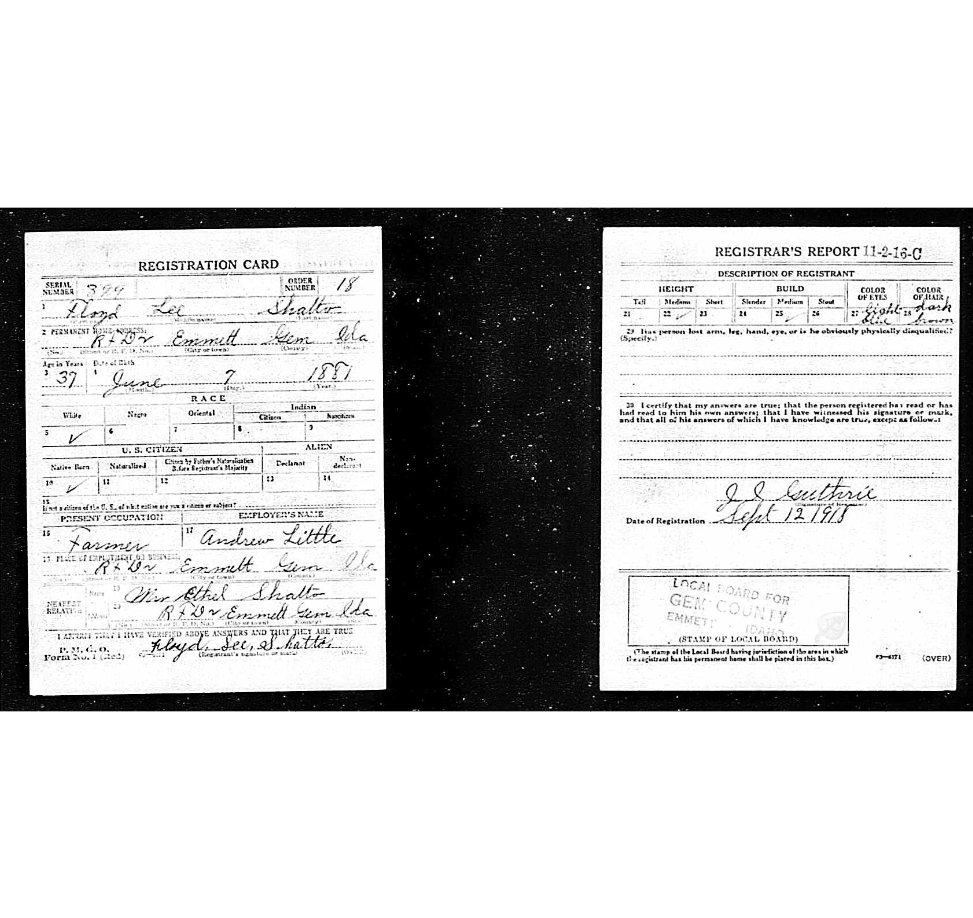 REGISTRATION CARD
SERIAL NUMBER 399 ORDER NUMBER 18
1 Floyd Lee Shatto
(Middle name) (Last name)
2 PERMANENT HOME ADDRESS:
R F D 2 Emmett Gem Ida
(No.) (Street or R. F. D. No.) (City or town) (County)
Age in Years Date of Birth
3 37 4 June 7 1881
(Month.) (Day.) (Year.)
RACE
White Negro Oriental Indian
Citizen Noncitizen
5 ✓ 6 7 8 9
U. S. CITIZEN ALIEN
Native Born Naturalized Citizen by Father's Naturalization Before Registrant's Majority Declarant Non-declarant
10 ✓ 11 12 13 14
15
If not a citizen of the U. S., of what nation are you a citizen or subject?
PRESENT OCCUPATION EMPLOYER'S NAME
16 Farmer 17 Andrew Little
18 PLACE OF EMPLOYMENT OR BUSINESS:
R F D 2 Emmett Gem Ida
(City or town) (County)
NEAREST RELATIVE
Name 19 Mrs Ethel Shatto
Address 20 R F D 2 Emmett Gem Ida
(No.) (City or town) (County)
I AFFIRM THAT I HAVE VERIFIED ABOVE ANSWERS AND THAT THEY ARE TRUE
P. M. G. O.
Form No. 1 (Red) Floyd Lee Shatto
(Registrant's signature or mark) (OVER)
REGISTRAR'S REPORT 11-2-16-C
DESCRIPTION OF REGISTRANT
HEIGHT BUILD COLOR OF EYES COLOR OF HAIR
Tall Medium Short Slender Medium Stout
21 22 ✓ 23 24 25 ✓ 26 27 light blue 28 dark brown
29 Has person lost arm, leg, hand, eye, or is he obviously physically disqualified?
(Specify.)
30 I certify that my answers are true; that the person registered has read or has
had read to him his own answers; that I have witnessed his signature or mark,
and that all of his answers of which I have knowledge are true, except as follows:
Guthrie
(Signature of Registrar)
Date of Registration Sept 12 1918
LOCAL BOARD FOR
GEM COUNTY
EMMETT IDAHO
(STAMP OF LOCAL BOARD)
(The stamp of the Local Board having jurisdiction of the area in which
the registrant has his permanent home shall be placed in this box.)
(OVER)